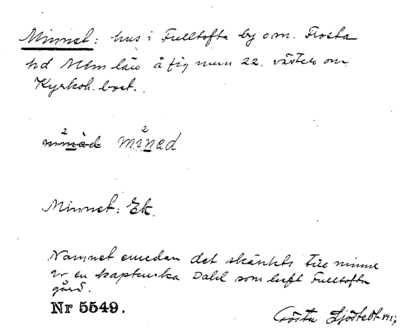 Minnet: hus i Fulltofta by o m. Frosta
hd Mlm län å fig num 22. väster om
Kyrkoh. bost.
2 2
minäd minəd
Minnet: Ek.
Namnet emedan det skänkts till minne
av en kaptenska Dahl som haft Fulltofta
gård.
Nr 5549.
Gösta Sjöstedt